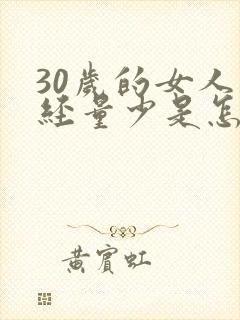 30歲的女人
經量少是怎
黃賓虹